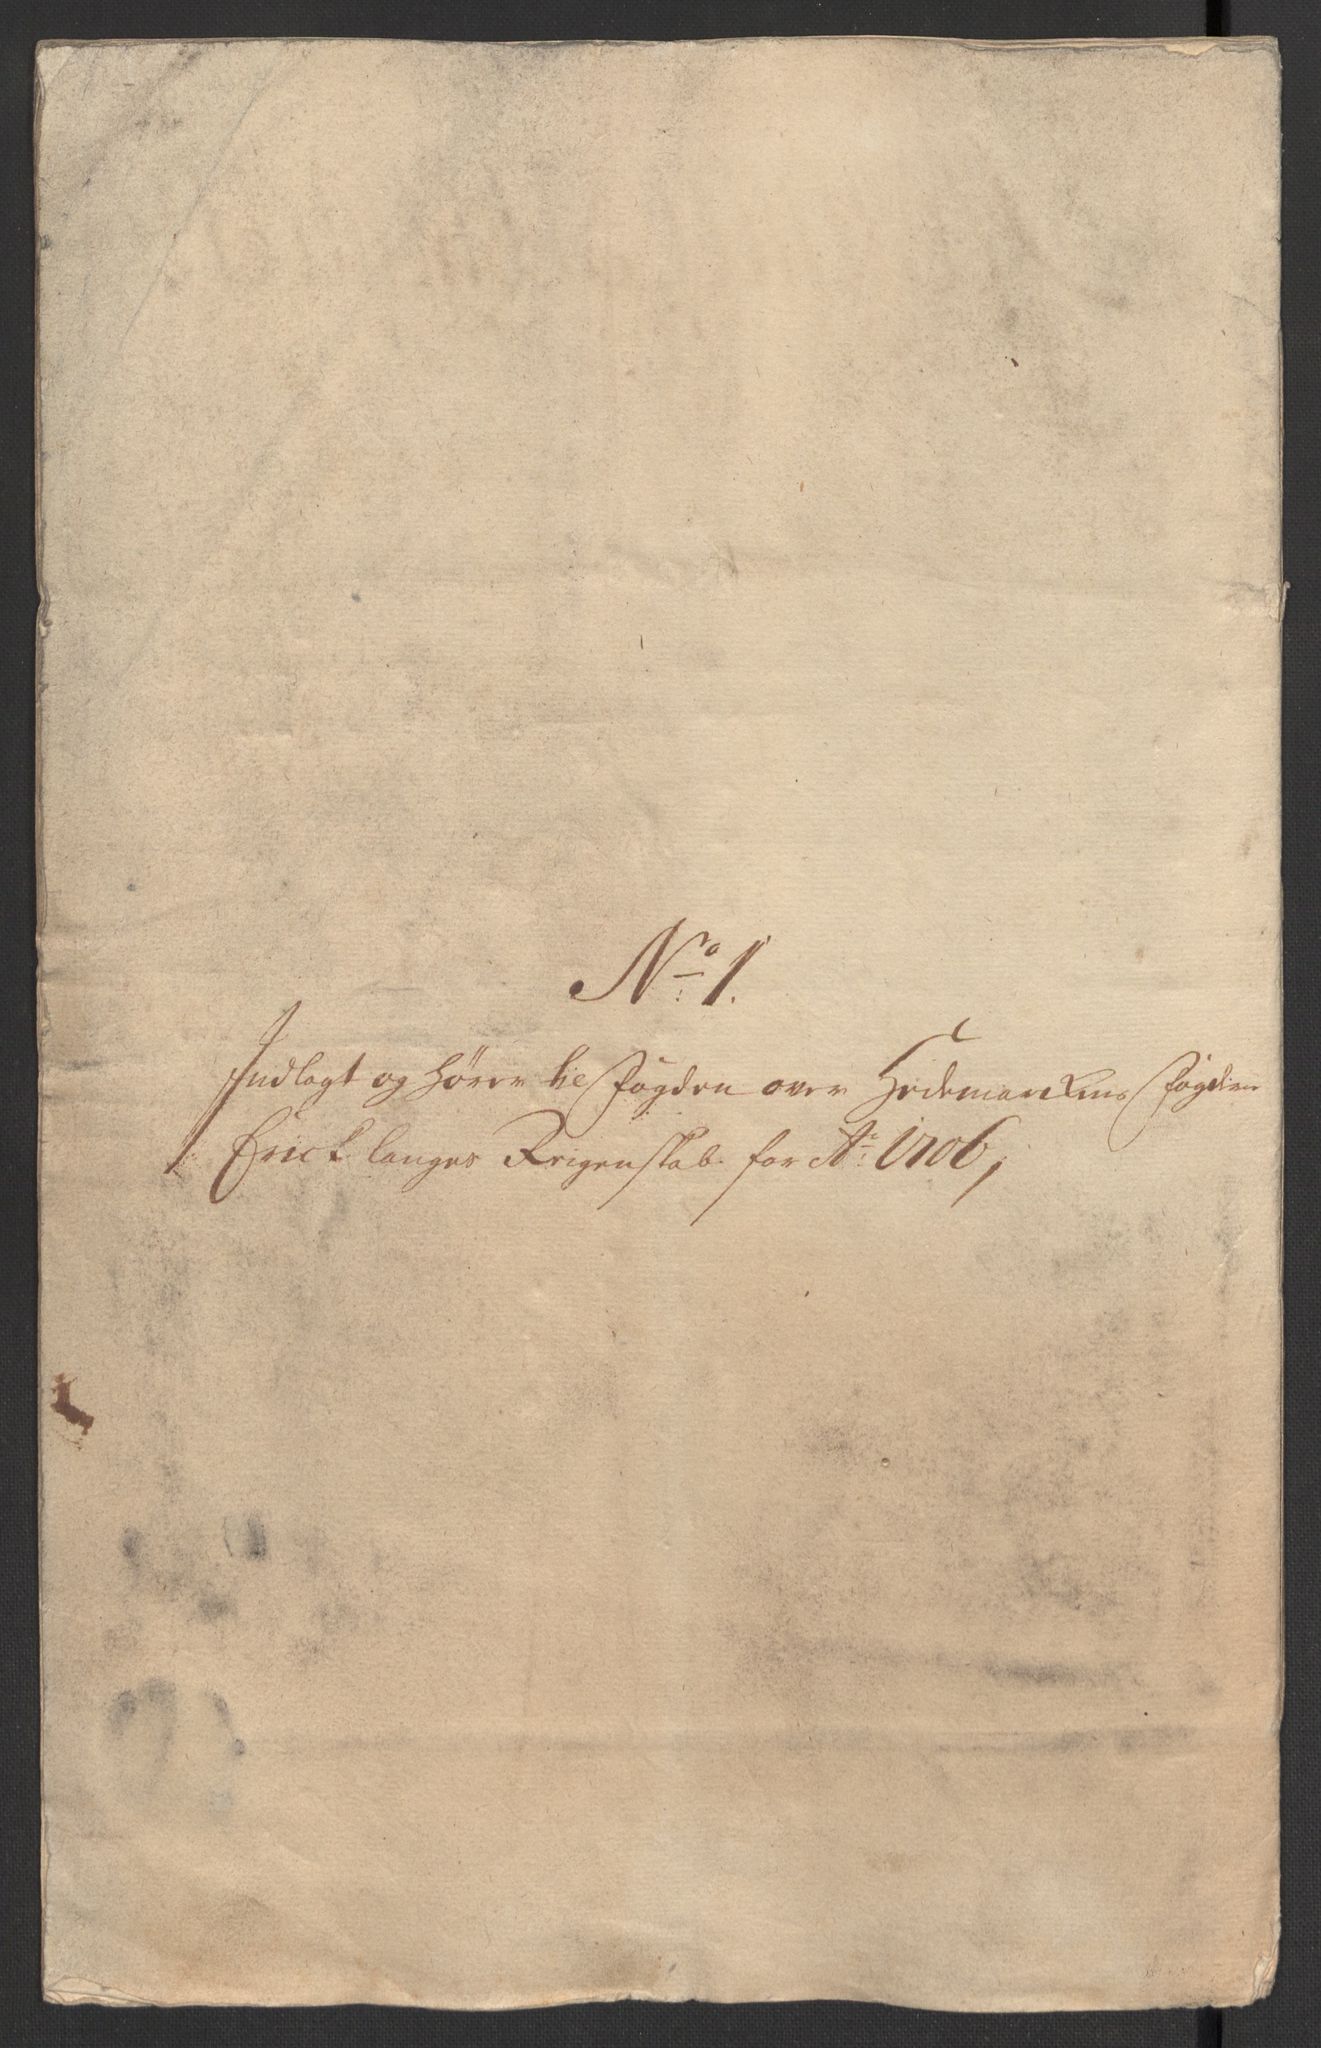 No 1.
Indlagt og hörer til fogden over Hedemarckens fogderie
Erick langes Reigenskab for Ao 1706,